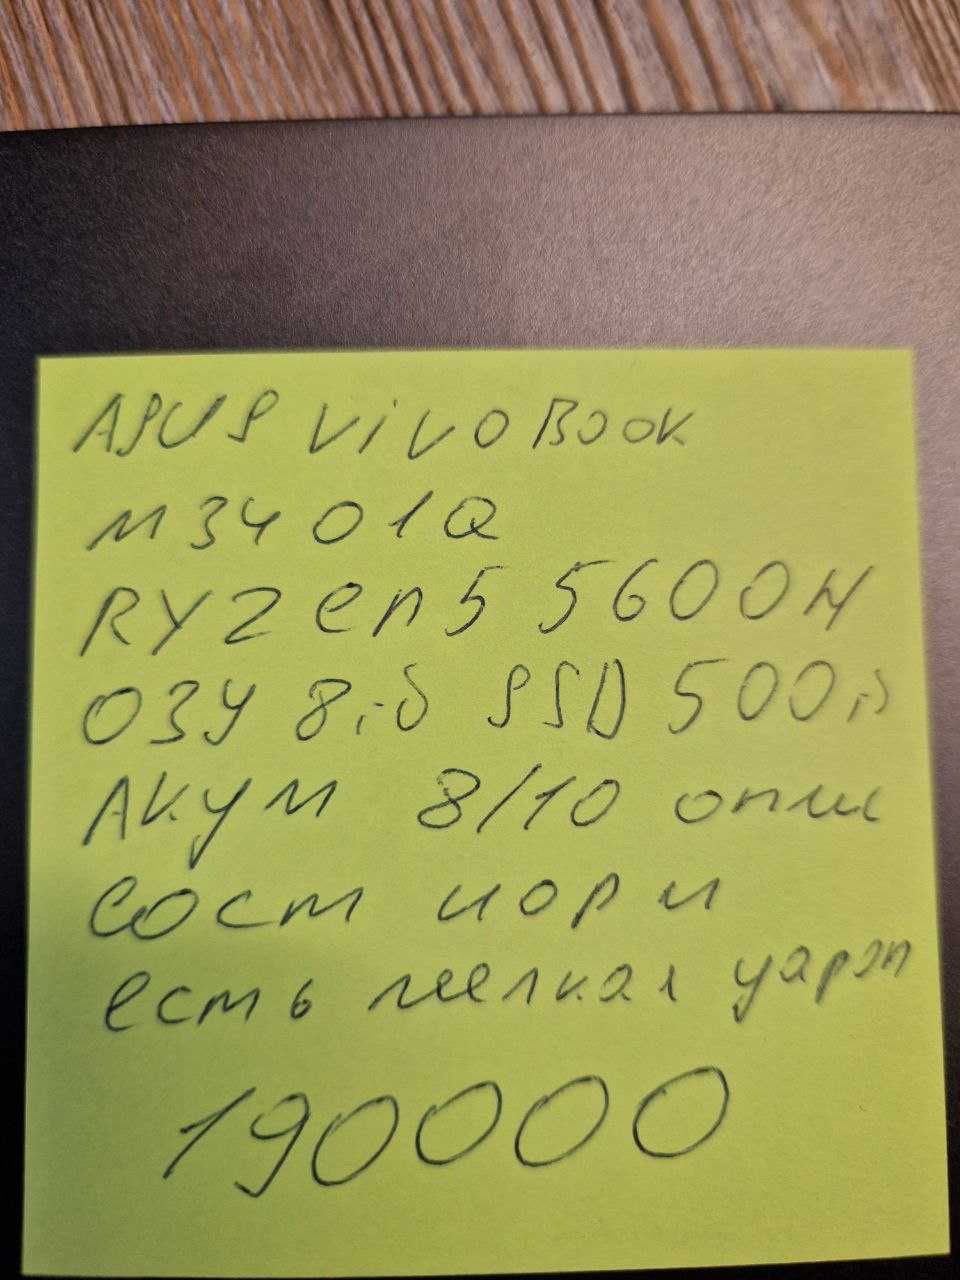 ASUS VivoBook
M3401Q
RYZen5 5600H
ОЗУ 8гб SSD 500гб
Акум 8/10
сост норм
есть мелкая царап
190000